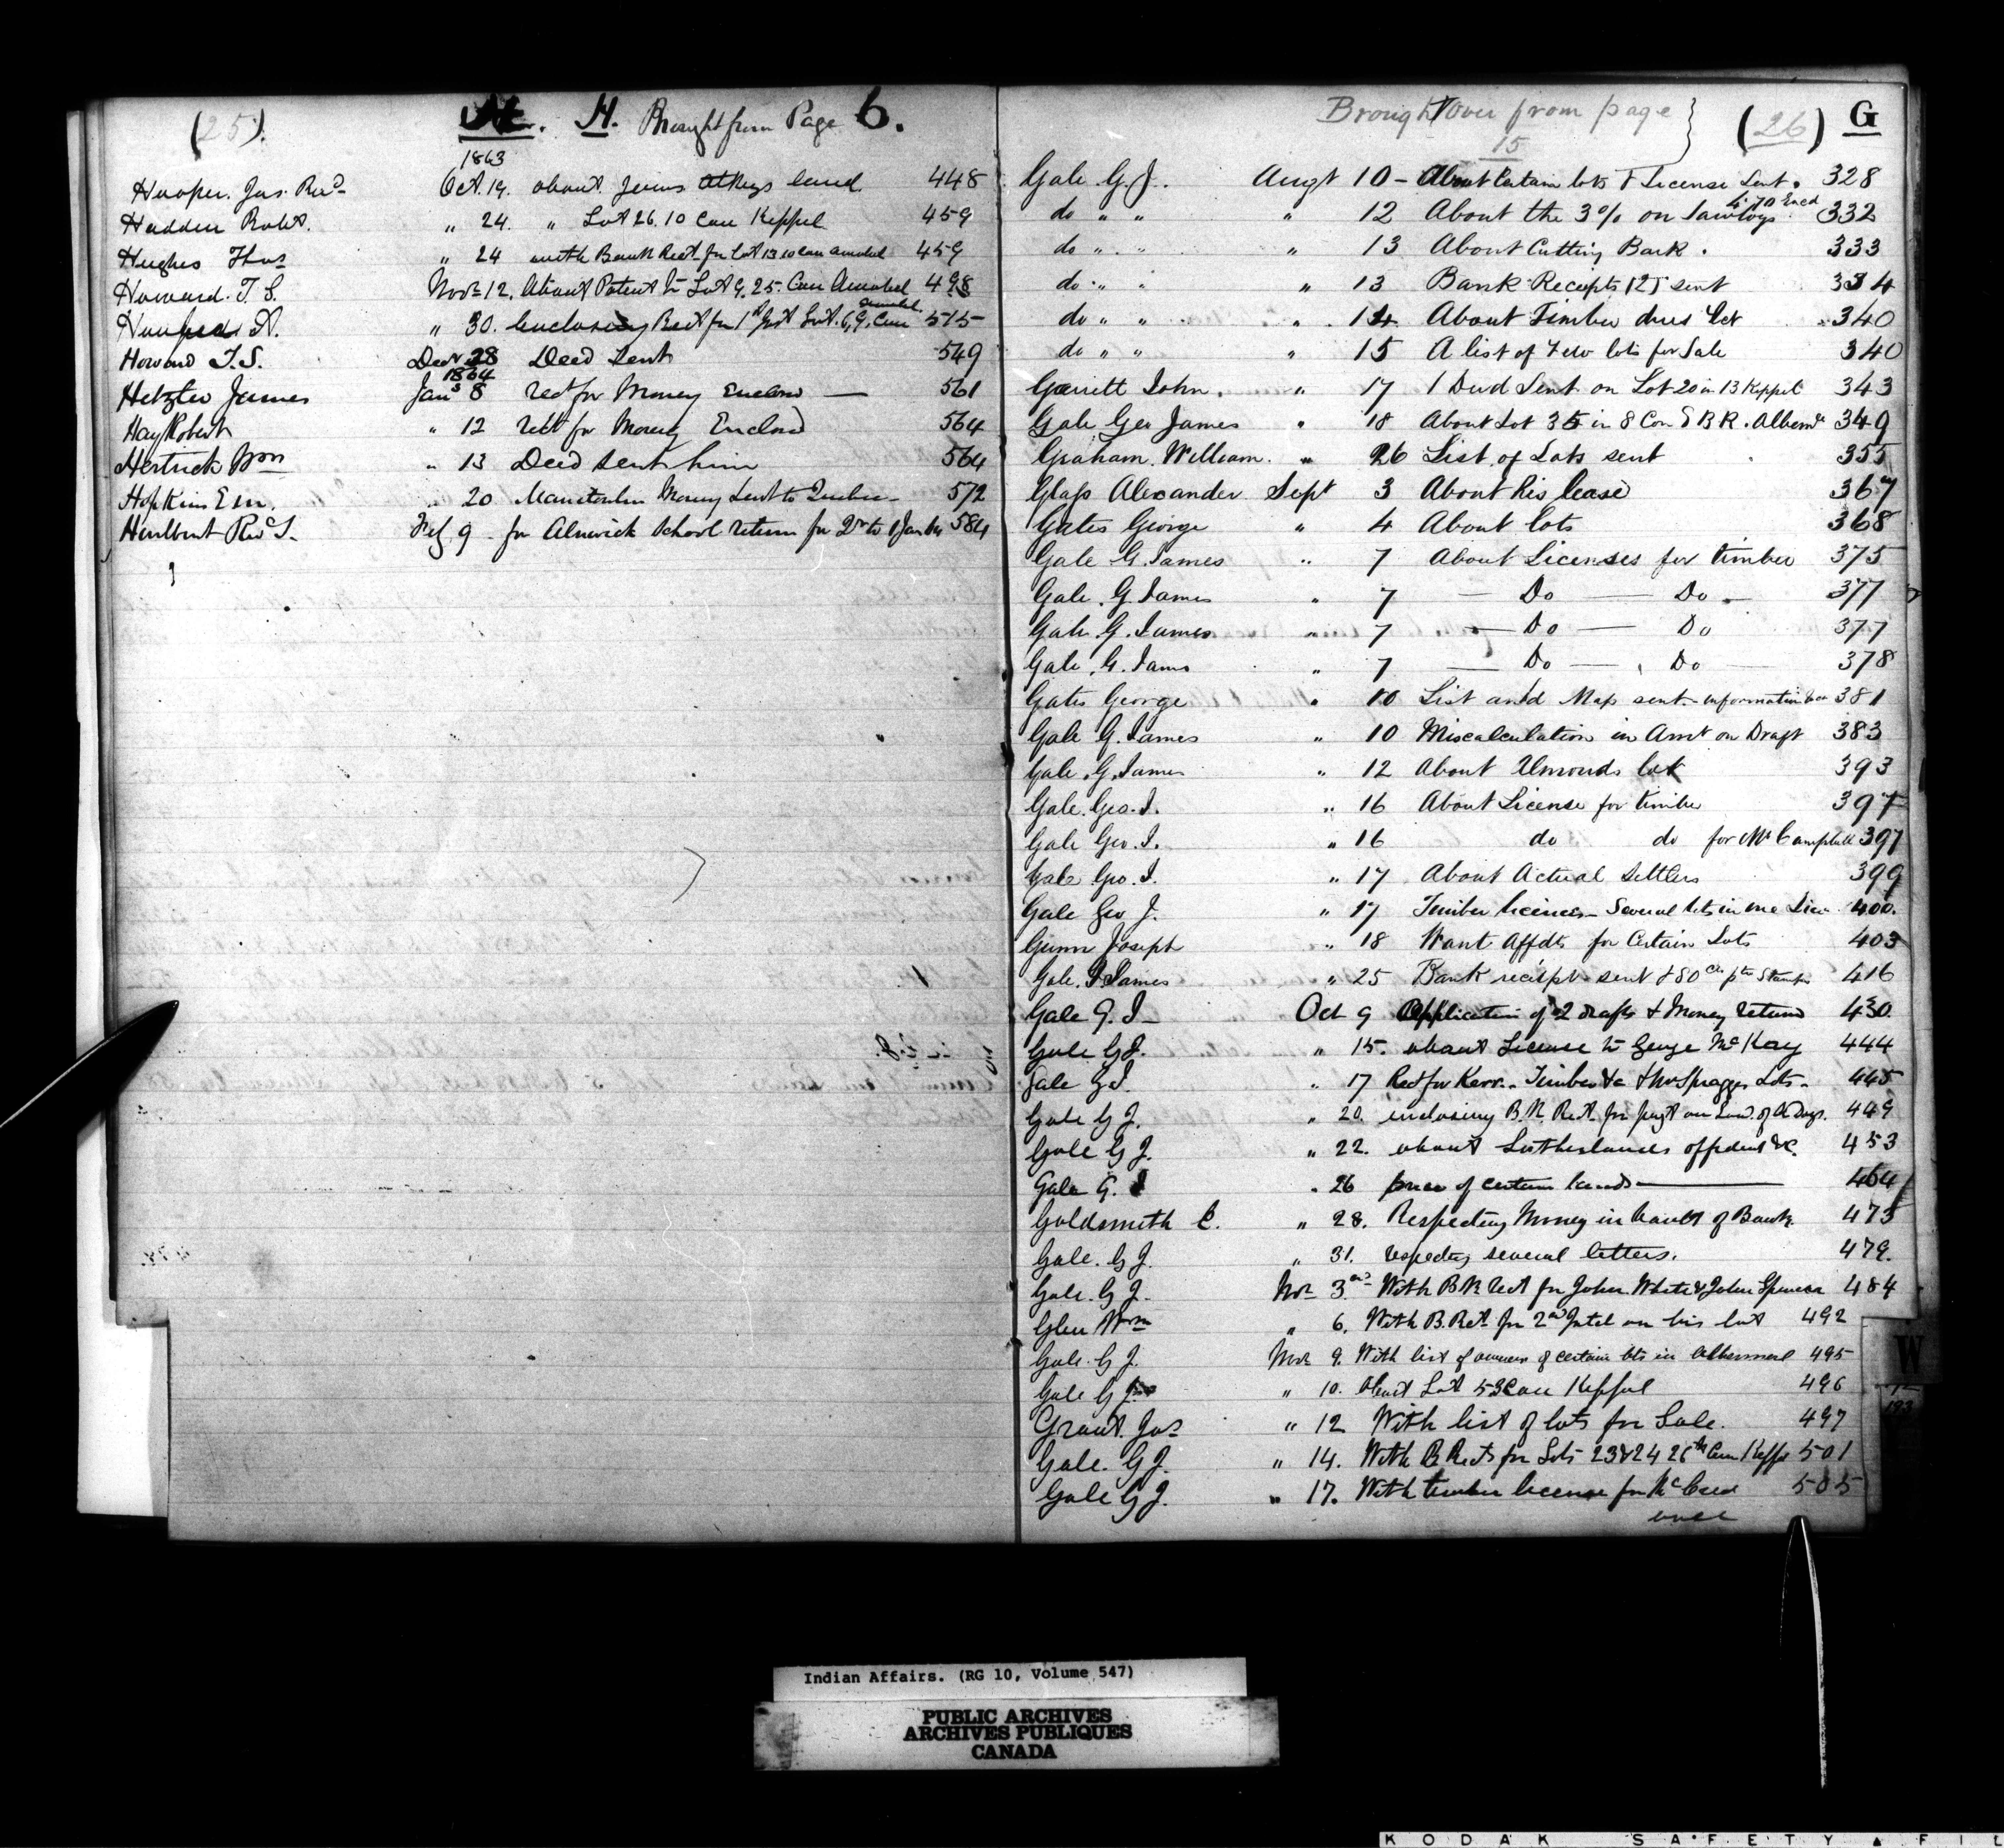 (25). H. Brought from Page 6.
1863
Hooper. Jas. Revd Oct. 19. about James Atkeys land 448
Hadden Robt. " 24. " Lot 26. 10 Con Keppel 459
Hughes Thos " 24 with Bank Rect. for Lot 13 10 Con Amabel 459
Howard. T. S. Novr 12. About Patent to Lot 9. 25. Con Amabel 498
" 30. Enclosing Rect for 1st Inst Lot. 6, 9, Con Amabel 515
Howard T. S. Decr 28 Deed sent 549
1864
Hetzler James Jany 8 rect for Money Enclosd 561
Hay Robert " 12 rect for Money Enclosd 564
Hertrick Wm " 13 Deed sent him 564
Hopkins Em. " 20 Manitoulin Money sent to Quebec 572
Hurlburt Revd T. Feb 9 for Alnwick School return for 2 584
Brought Over from page 15 (26) G
Gale G. J. Augt 10 - About Certain lots & License Sent. 328
do " " " 12 About the 3% on Sawlogs 332
do " " " 13 About Cutting Bark. 333
do " " " 13 Bank Receipts 125 sent 334
do " " " 14 About Timber dues &ct 340
do " " " 15 A list of Few lots for Sale 340
Garrett John. " 17 1 Deed Sent on Lot 20 in 13 Keppel 343
Gale Geo James " 18 About Lot 35 in 8 Con E B R. Albeml 349
Graham. William. " 26 List of Lots sent 355
Glass Alexander Sept 3 About his lease 367
Gates George " 4 About lots 368
Gale G. James " 7 About Licenses for timber 375
Gale. G. James " 7 — Do — Do — 377
Gale. G. James " 7 — Do — Do 377
Gale. G. James " 7 — Do — Do — 378
Gates George " 10 List and Map sent - information &c 381
Gale G. James " 10 Miscalculation in Amt on Draft 383
Gale. G. James " 12 About Almonds lot 393
Gale. Geo. J. " 16 About License for timber 397
Gale Geo. J. " 16 do do for Mr Campbell 397
Gale Geo. J. " 17 About Actual Settlers 399
Gale Geo J. " 17 Timber licences - Several lots in one Lice 400.
Gunn Joseph " 18 Want Affdts for Certain Lots 403
Gale. G James " 25 Bank receipt sent & 80 416
Gale G. J Oct 9 Application of 2 drafts & Money returnd 430.
Gale G J. " 15. about License to George McKay 444
Gale G. J. " 17 Rect for Kerr. Timber &c Lots 445
Gale G J. " 20. enclosing B. R. Rect. for 449
Gale G J. " 22. about Sutherlands &c. 453
Gale G. J " 26 price of certain lands 464
Goldsmith C. " 28. Respecting Money in hands of Bank 475
Gale. G J. " 31. respecting several letters. 479.
Gale. G J. Novr 3rd With Bk rect for John White & John Spencer 484
Glen Wm " 6. With B. Rect for 2nd Instal on his lot 492
Gale. G J. Novr 9. With list of owners of certain lots in Albermarl 495
Gale G J. " 10. About Lot 5 Con Keppel 496
Grant. Jas " 12 With list of lots for Sale. 497
Gale. G J. " 14. With B Rects for Lots 23 & 24 26th Con Keppl 501
Gale G J. " 17. With timber license for 505
over
W
Indian Affairs. (RG 10, Volume 547)
PUBLIC ARCHIVES
ARCHIVES PUBLIQUES
CANADA
KODAK SAFETY FIL